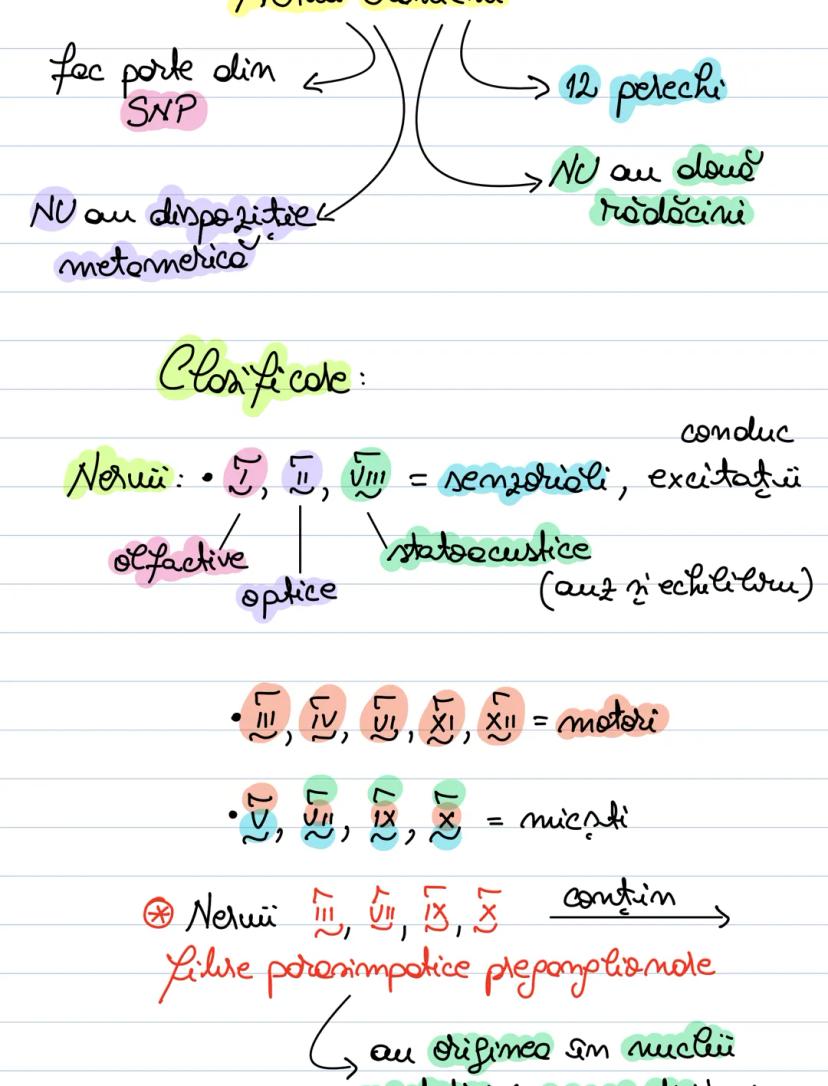 fac parte din
SNP
12 perechi
NU au două
rădăcini
NU au dispoziție
metamerică
Clasificare:
conduc
Nervii: • I, II, VIII = senzoriali, excitații
olfactive
statoacustice
optice
(auz și echilibru)
• III, IV, VI, XI, XII = motori
• V, VII, IX, X = micști
* Nervii III, VII, IX, X conțin
fibre parasimpatice preganglionare
au originea în nucleii